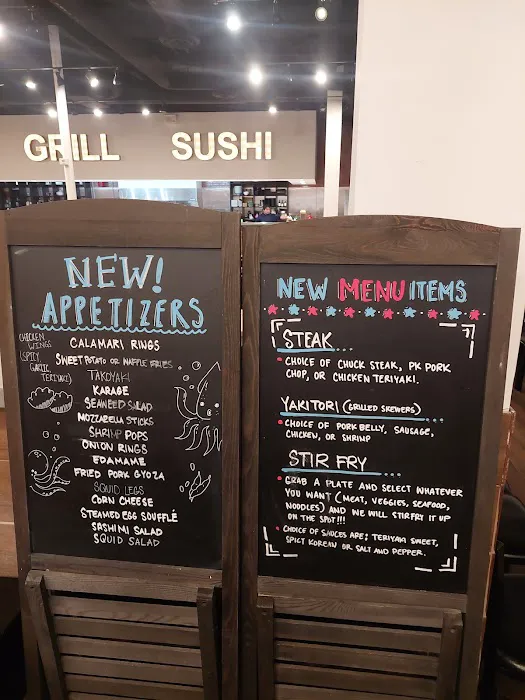 GRILL SUSHI
NEW!
APPETIZERS
CHICKEN
WINGS
(SPICY,
GARLIC,
TERIYAKI)
CALAMARI RINGS
SWEET POTATO OR WAFFLE FRIES
TAKOYAKI
KARAGE
SEAWEED SALAD
MOZZARELLA STICKS
SHRIMP POPS
ONION RINGS
EDAMAME
FRIED PORK GYOZA
SQUID LEGS
CORN CHEESE
STEAMED EGG SOUFFLÉ
SASHIMI SALAD
SQUID SALAD
NEW MENU ITEMS
STEAK
CHOICE OF CHUCK STEAK, PK PORK
CHOP, OR CHICKEN TERIYAKI.
YAKITORI (GRILLED SKEWERS)
CHOICE OF PORK BELLY, SAUSAGE,
CHICKEN, OR SHRIMP
STIR FRY
GRAB A PLATE AND SELECT WHATEVER
YOU WANT (MEAT, VEGGIES, SEAFOOD,
NOODLES) AND WE WILL STIRFRY IT UP
ON THE SPOT!!!
CHOICE OF SAUCES ARE; TERIYAKI SWEET,
SPICY KOREAN OR SALT AND PEPPER.